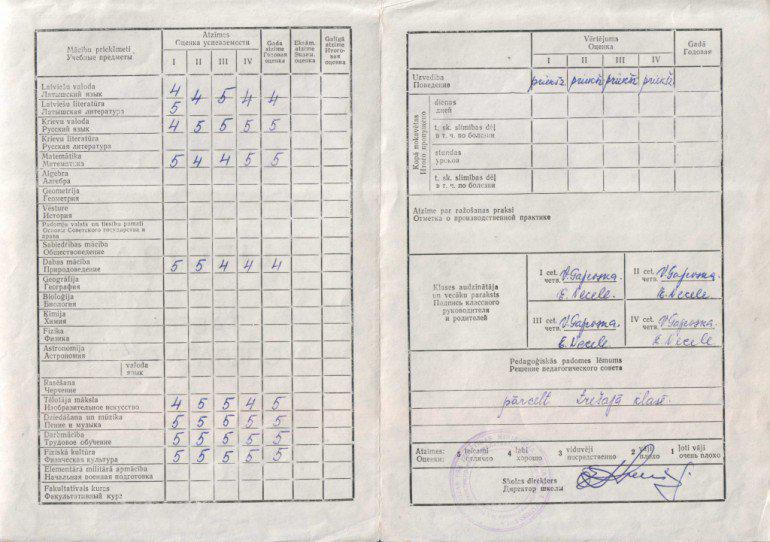 Mācību priekšmeti
Учебные предметы
Atzīmes
Оценка успеваемости
I II III IV
Gada atzīme Годовая оценка
Eksām. atzīme Экзам. оценка
Galīgā atzīme Итоговая оценка
Latviešu valoda 4 4 5 4 4
Латышский язык
Latviešu literatūra 5
Латышская литература
Krievu valoda 4 5 5 5 5
Русский язык
Krievu literatūra
Русская литература
Matemātika 5 4 4 5 5
Математика
Algebra
Алгебра
Ģeometrija
Геометрия
Vēsture
История
Padomju valsts un tiesību pamati
Основы Советского государства и права
Sabiedrības mācība
Обществоведение
Dabas mācība 5 5 4 4 4
Природоведение
Ģeogrāfija
География
Bioloģija
Биология
Ķīmija
Химия
Fizika
Физика
Astronomija
Астрономия
valoda
язык
Rasēšana
Черчение
Tēlotāja māksla 4 5 5 4 5
Изобразительное искусство
Dziedāšana un mūzika 5 5 5 5 5
Пение и музыка
Darbmācība 5 5 5 5 5
Трудовое обучение
Fiziskā kultūra 5 5 5 5 5
Физическая культура
Elementārā militārā apmācība
Начальная военная подготовка
Fakultatīvais kurss
Факультативный курс
Vērtējums
Оценка
I II III IV
Gadā
Годовая
Uzvedība
Поведение
priekšz. priekšz. priekšz. priekšz.
Kopā nokavētas
Итого пропущено
dienas
дней
t. sk. slimības dēļ
в т. ч. по болезни
stundas
уроков
t. sk. slimības dēļ
в т. ч. по болезни
Atzīme par ražošanas praksi
Отметка о производственной практике
Klases audzinātāja
un vecāku paraksts
Подпись классного
руководителя
и родителей
I cet.
четв.
II cet.
четв.
III cet.
четв.
IV cet.
четв.
Pedagoģiskās padomes lēmums
Решение педагогического совета
pārcelt trešajā klasē.
Atzīmes: 5 teicami 4 labi 3 viduvēji 2 vāji 1 ļoti vāji
Оценки: отлично хорошо посредственно плохо очень плохо
Skolas direktors
Директор школы